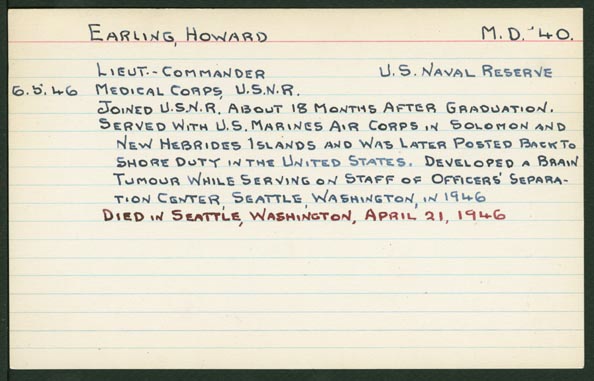 EARLING, HOWARD M.D. '40.
LIEUT.-COMMANDER U.S. NAVAL RESERVE
6.5.46 MEDICAL CORPS, U.S.N.R.
JOINED U.S.N.R. ABOUT 18 MONTHS AFTER GRADUATION.
SERVED WITH U.S. MARINES AIR CORPS IN SOLOMON AND
NEW HEBRIDES ISLANDS AND WAS LATER POSTED BACK TO
SHORE DUTY IN THE UNITED STATES. DEVELOPED A BRAIN
TUMOUR WHILE SERVING ON STAFF OF OFFICERS' SEPARA-
TION CENTER, SEATTLE, WASHINGTON, IN 1946
DIED IN SEATTLE, WASHINGTON, APRIL 21, 1946